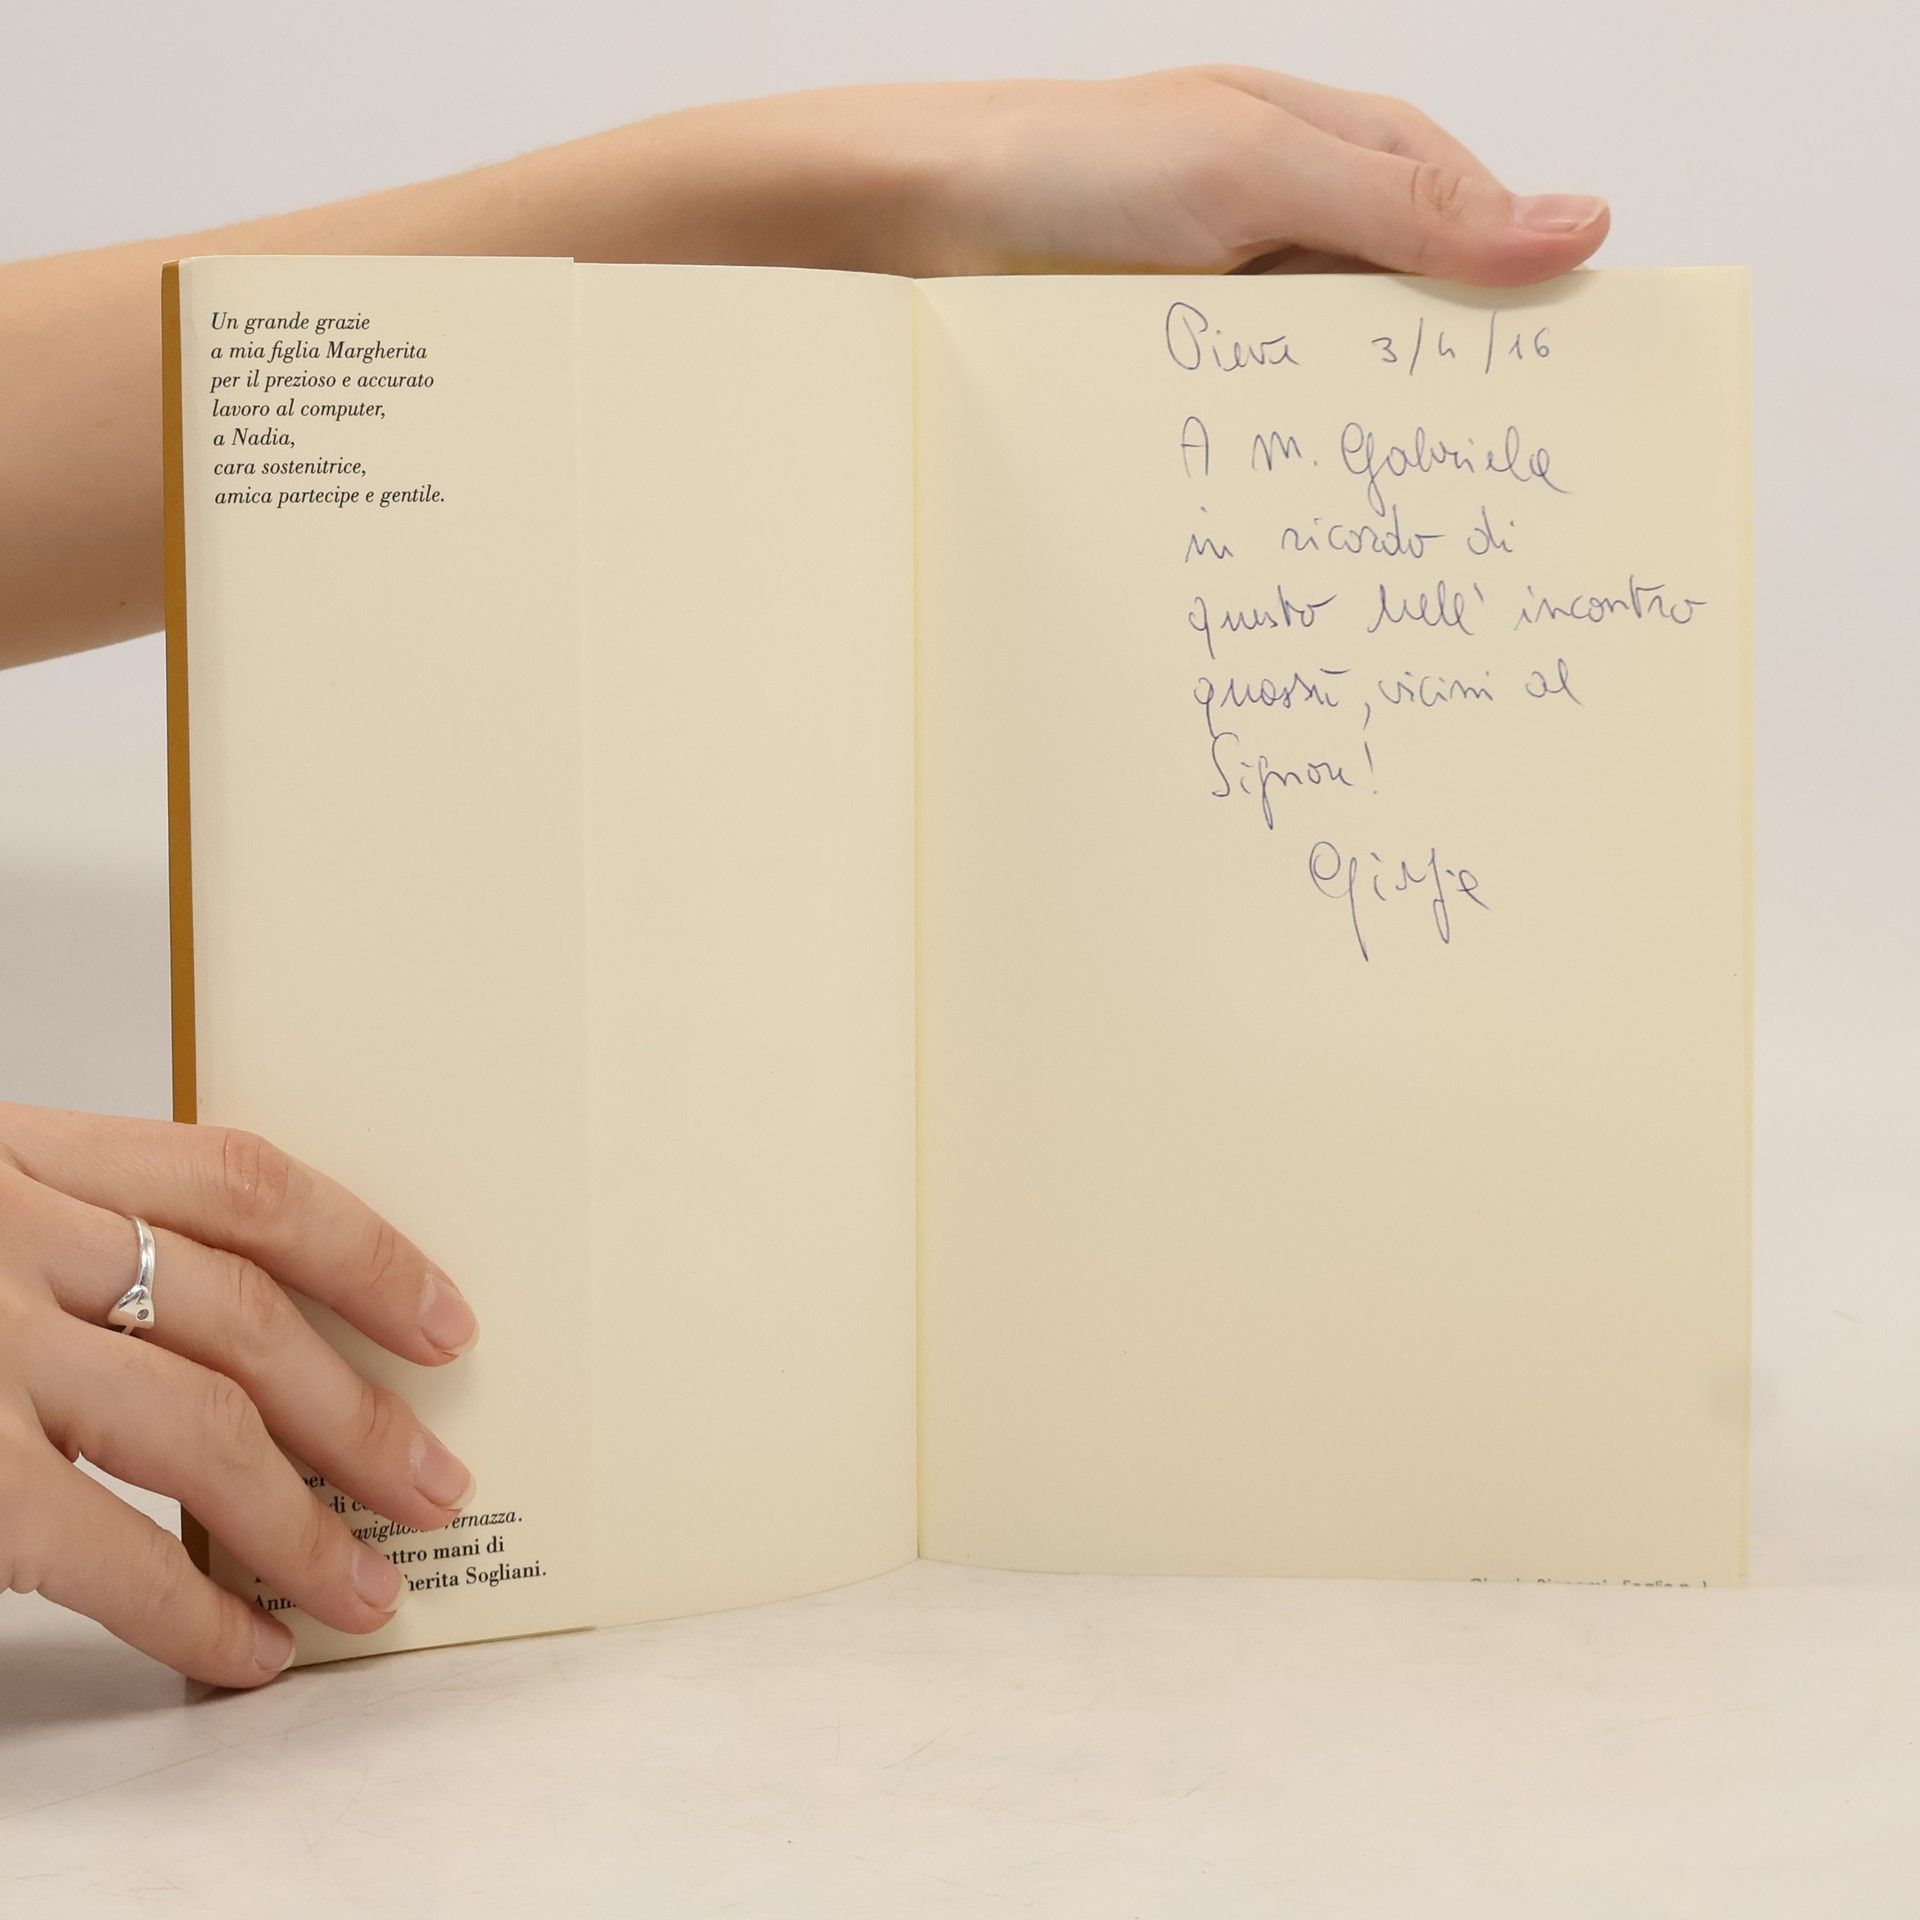 Un grande grazie
a mia figlia Margherita
per il prezioso e accurato
lavoro al computer,
a Nadia,
cara sostenitrice,
amica partecipe e gentile.
Vernazza.
mani di
Sogliani.
Pieve 3/4/16
A M. Gabriela
in ricordo di
questo incontro
quassù, vicini al
Signore!